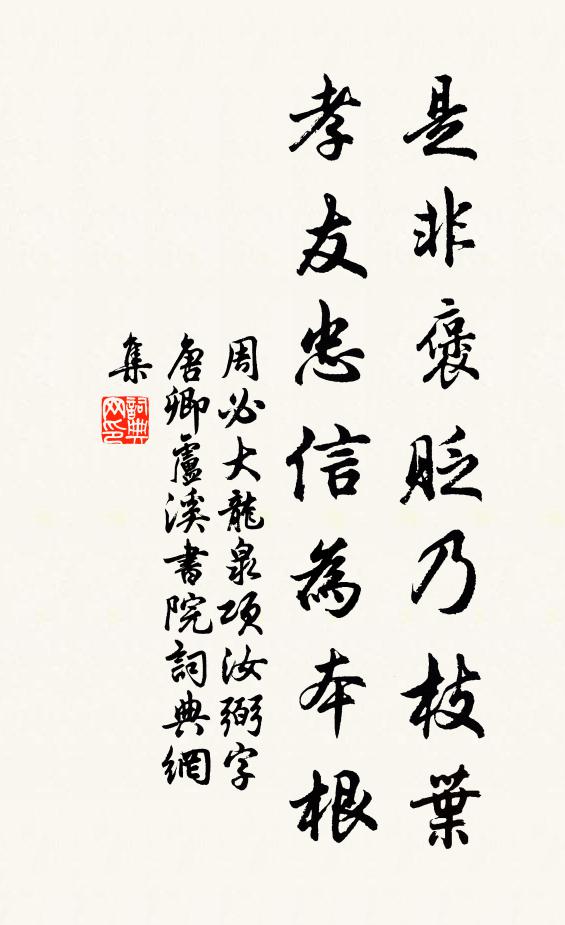 是非褒貶乃枝葉
孝友忠信為本根
周必大龍泉項汝弼字
唐卿盧溪書院詞典網
集
詞典
网印